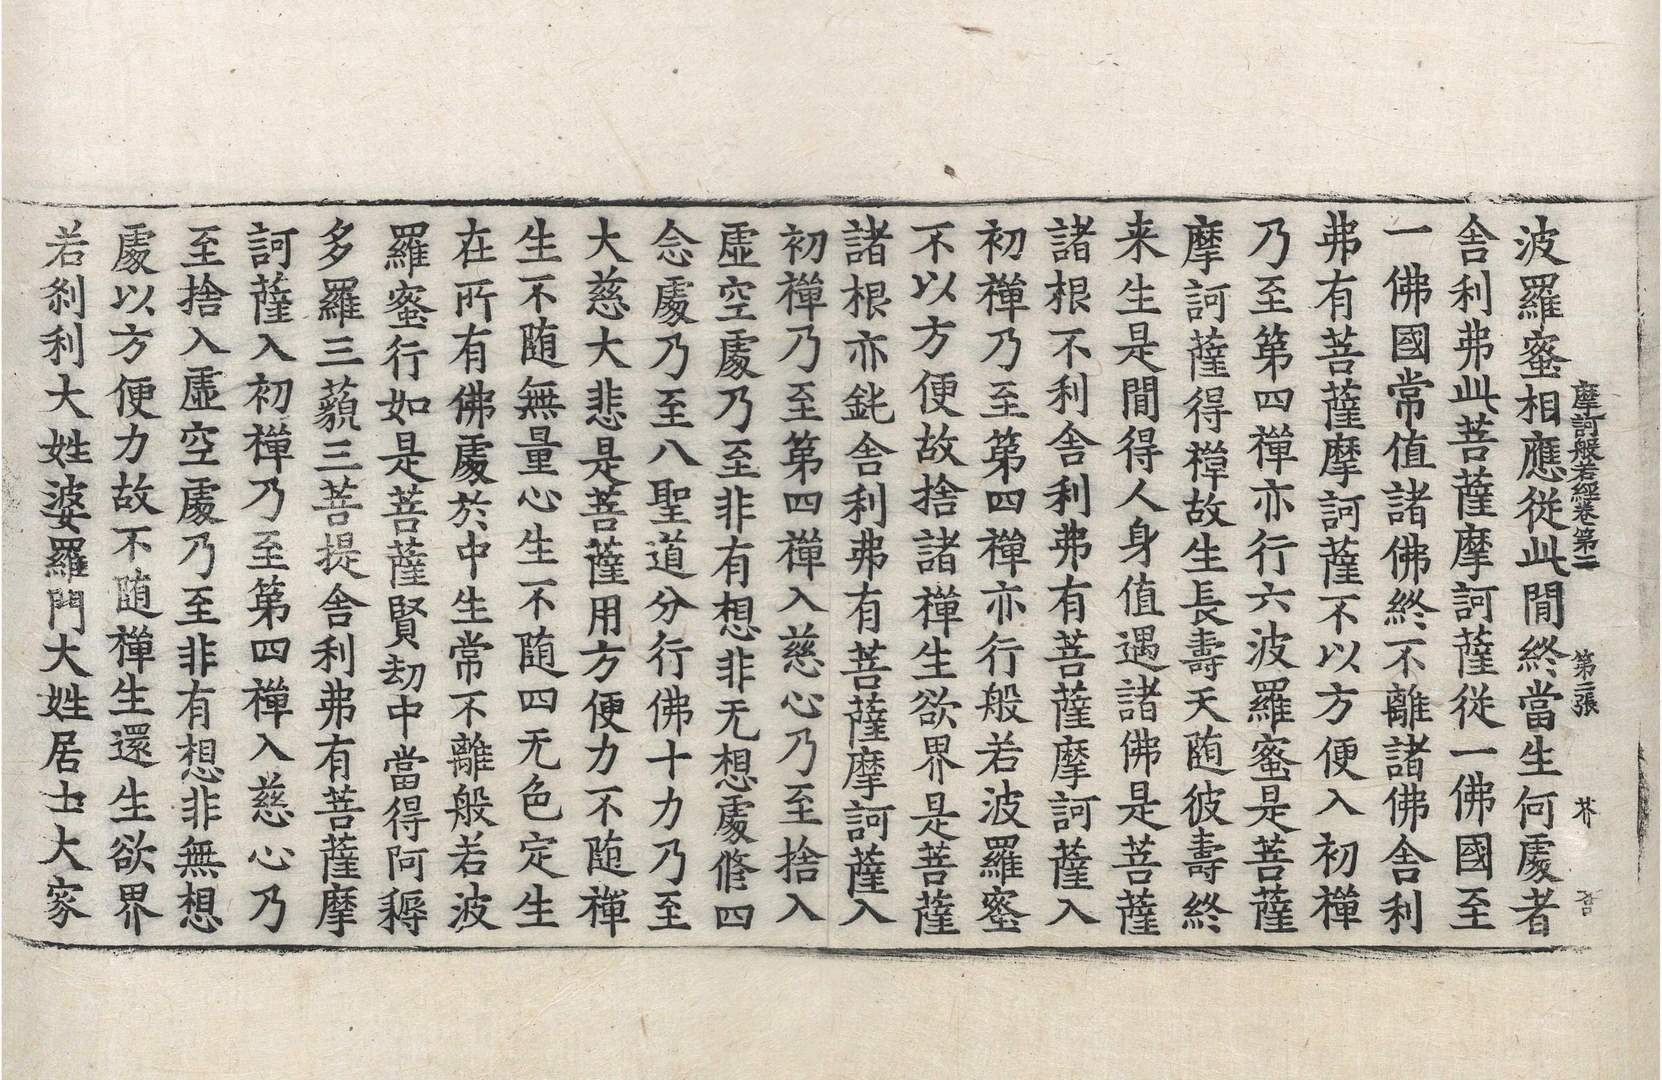 摩訶般若經卷第二　第二張　芥
波羅蜜相應從此閒終當生何處者
舍利弗此菩薩摩訶薩從一佛國至
一佛國常值諸佛終不離諸佛舍利
弗有菩薩摩訶薩不以方便入初禪
乃至第四禪亦行六波羅蜜是菩薩
摩訶薩得禪故生長壽天随彼壽終
来生是閒得人身值遇諸佛是菩薩
諸根不利舍利弗有菩薩摩訶薩入
初禪乃至第四禪亦行般若波羅蜜
不以方便故捨諸禪生欲界是菩薩
諸根亦鈍舍利弗有菩薩摩訶薩入
初禪乃至第四禪入慈心乃至捨入
虛空處乃至非有想非无想處修四
念處乃至八聖道分行佛十力乃至
大慈大悲是菩薩用方便力不随禪
生不随無量心生不随四无色定生
在所有佛處於中生常不離般若波
羅蜜行如是菩薩賢劫中當得阿耨
多羅三藐三菩提舍利弗有菩薩摩
訶薩入初禪乃至第四禪入慈心乃
至捨入虛空處乃至非有想非無想
處以方便力故不随禪生還生欲界
若刹利大姓婆羅門大姓居士大家